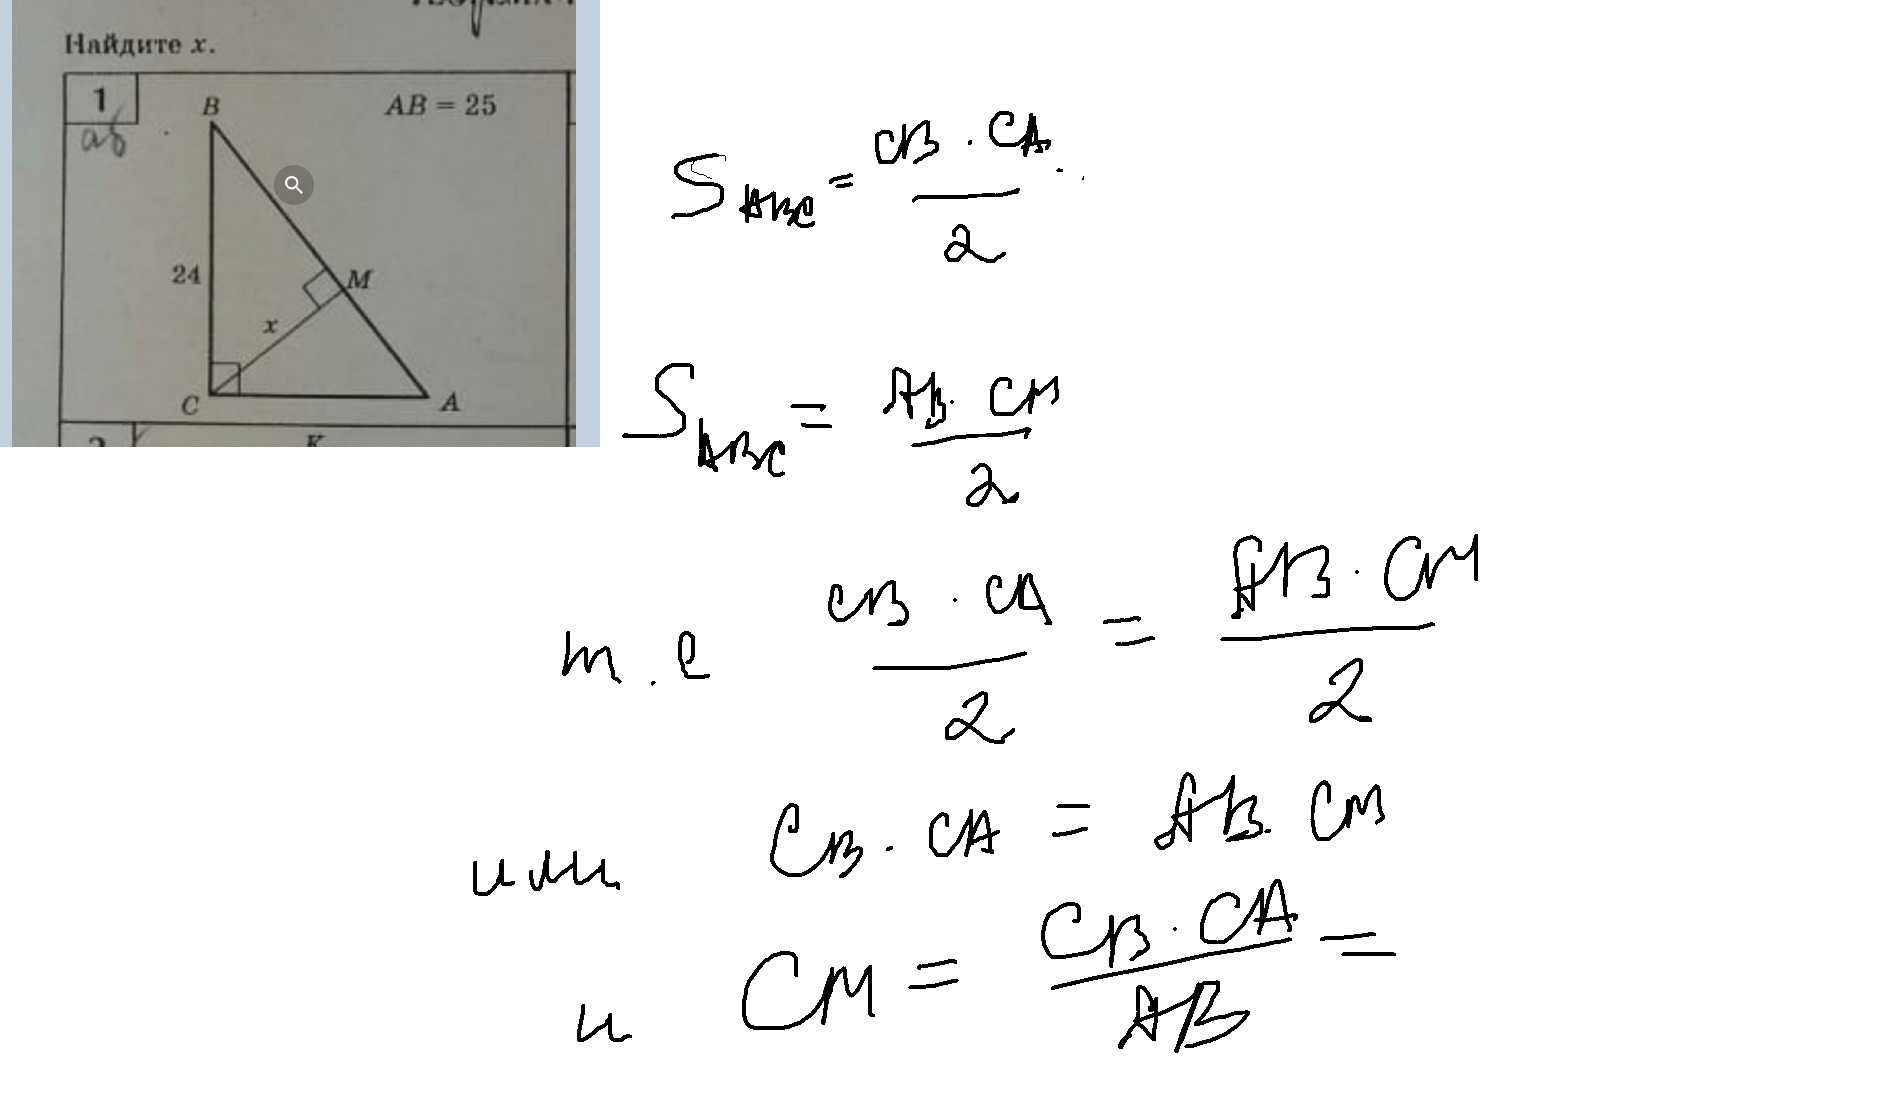 Найдите x.
1
аб
B
AB = 25
24
M
x
C
A
K
S ABC = CB · CA / 2
S ABC = AB · CM / 2
т.е CB · CA / 2 = AB · CM / 2
или CB · CA = AB · CM
и CM = CB · CA / AB =